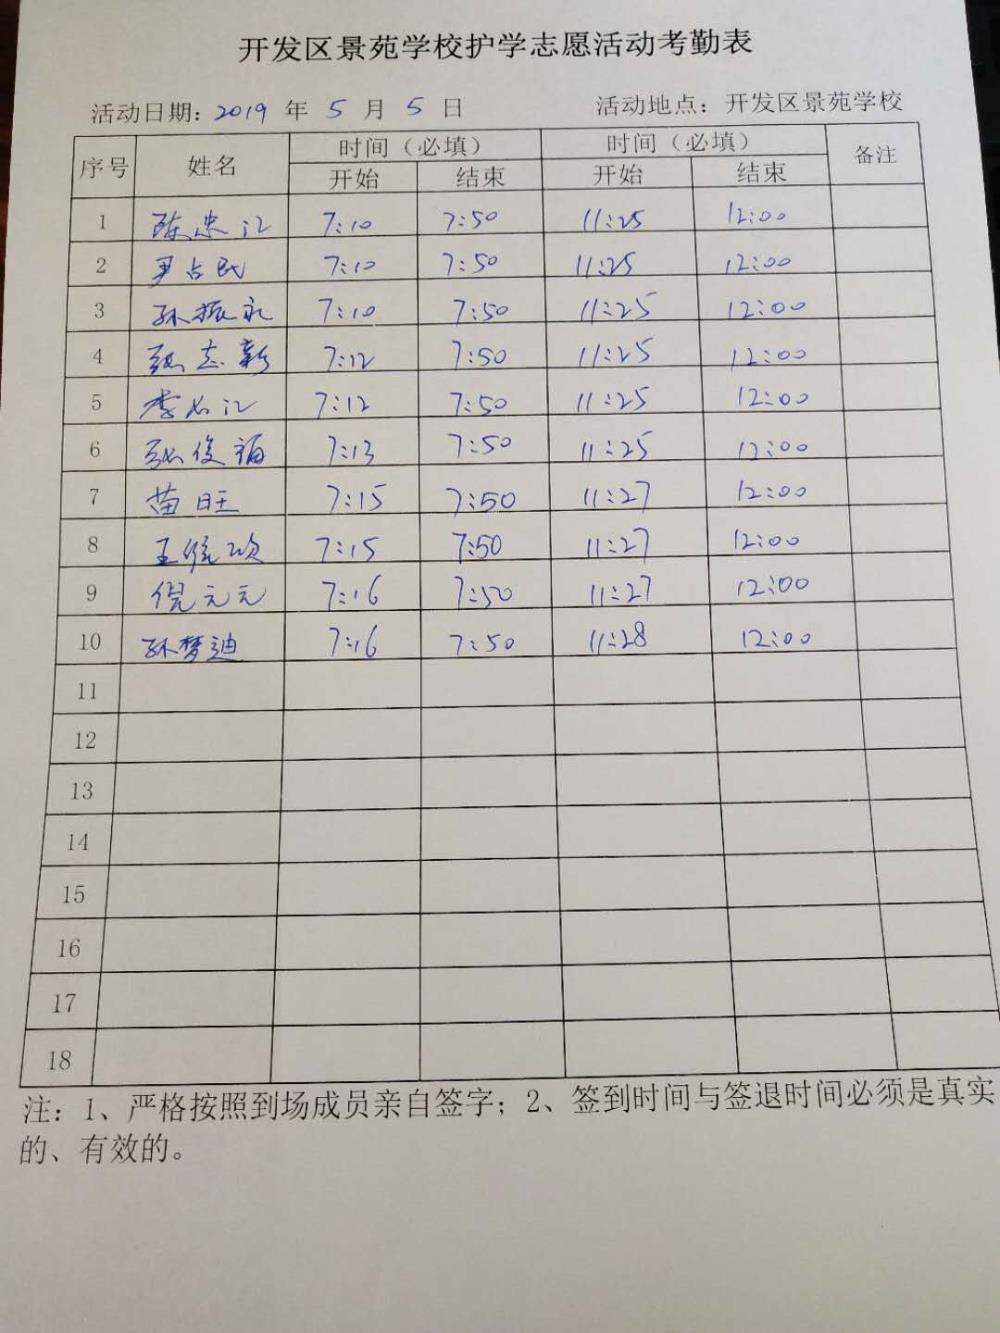 开发区景苑学校护学志愿活动考勤表
活动日期: 2019 年 5 月 5 日 活动地点: 开发区景苑学校
序号 姓名 时间（必填） 时间（必填） 备注
开始 结束 开始 结束
1 陈忠江 7:10 7:50 11:25 12:00
2 尹占民 7:10 7:50 11:25 12:00
3 孙振永 7:10 7:50 11:25 12:00
4 张志新 7:12 7:50 11:25 12:00
5 李 江 7:12 7:50 11:25 12:00
6 张俊福 7:13 7:50 11:25 12:00
7 苗旺 7:15 7:50 11:27 12:00
8 王 欣 7:15 7:50 11:27 12:00
9 倪元元 7:16 7:50 11:27 12:00
10 孙梦迪 7:16 7:50 11:28 12:00
11
12
13
14
15
16
17
18
注: 1、严格按照到场成员亲自签字; 2、签到时间与签退时间必须是真实
的、有效的。